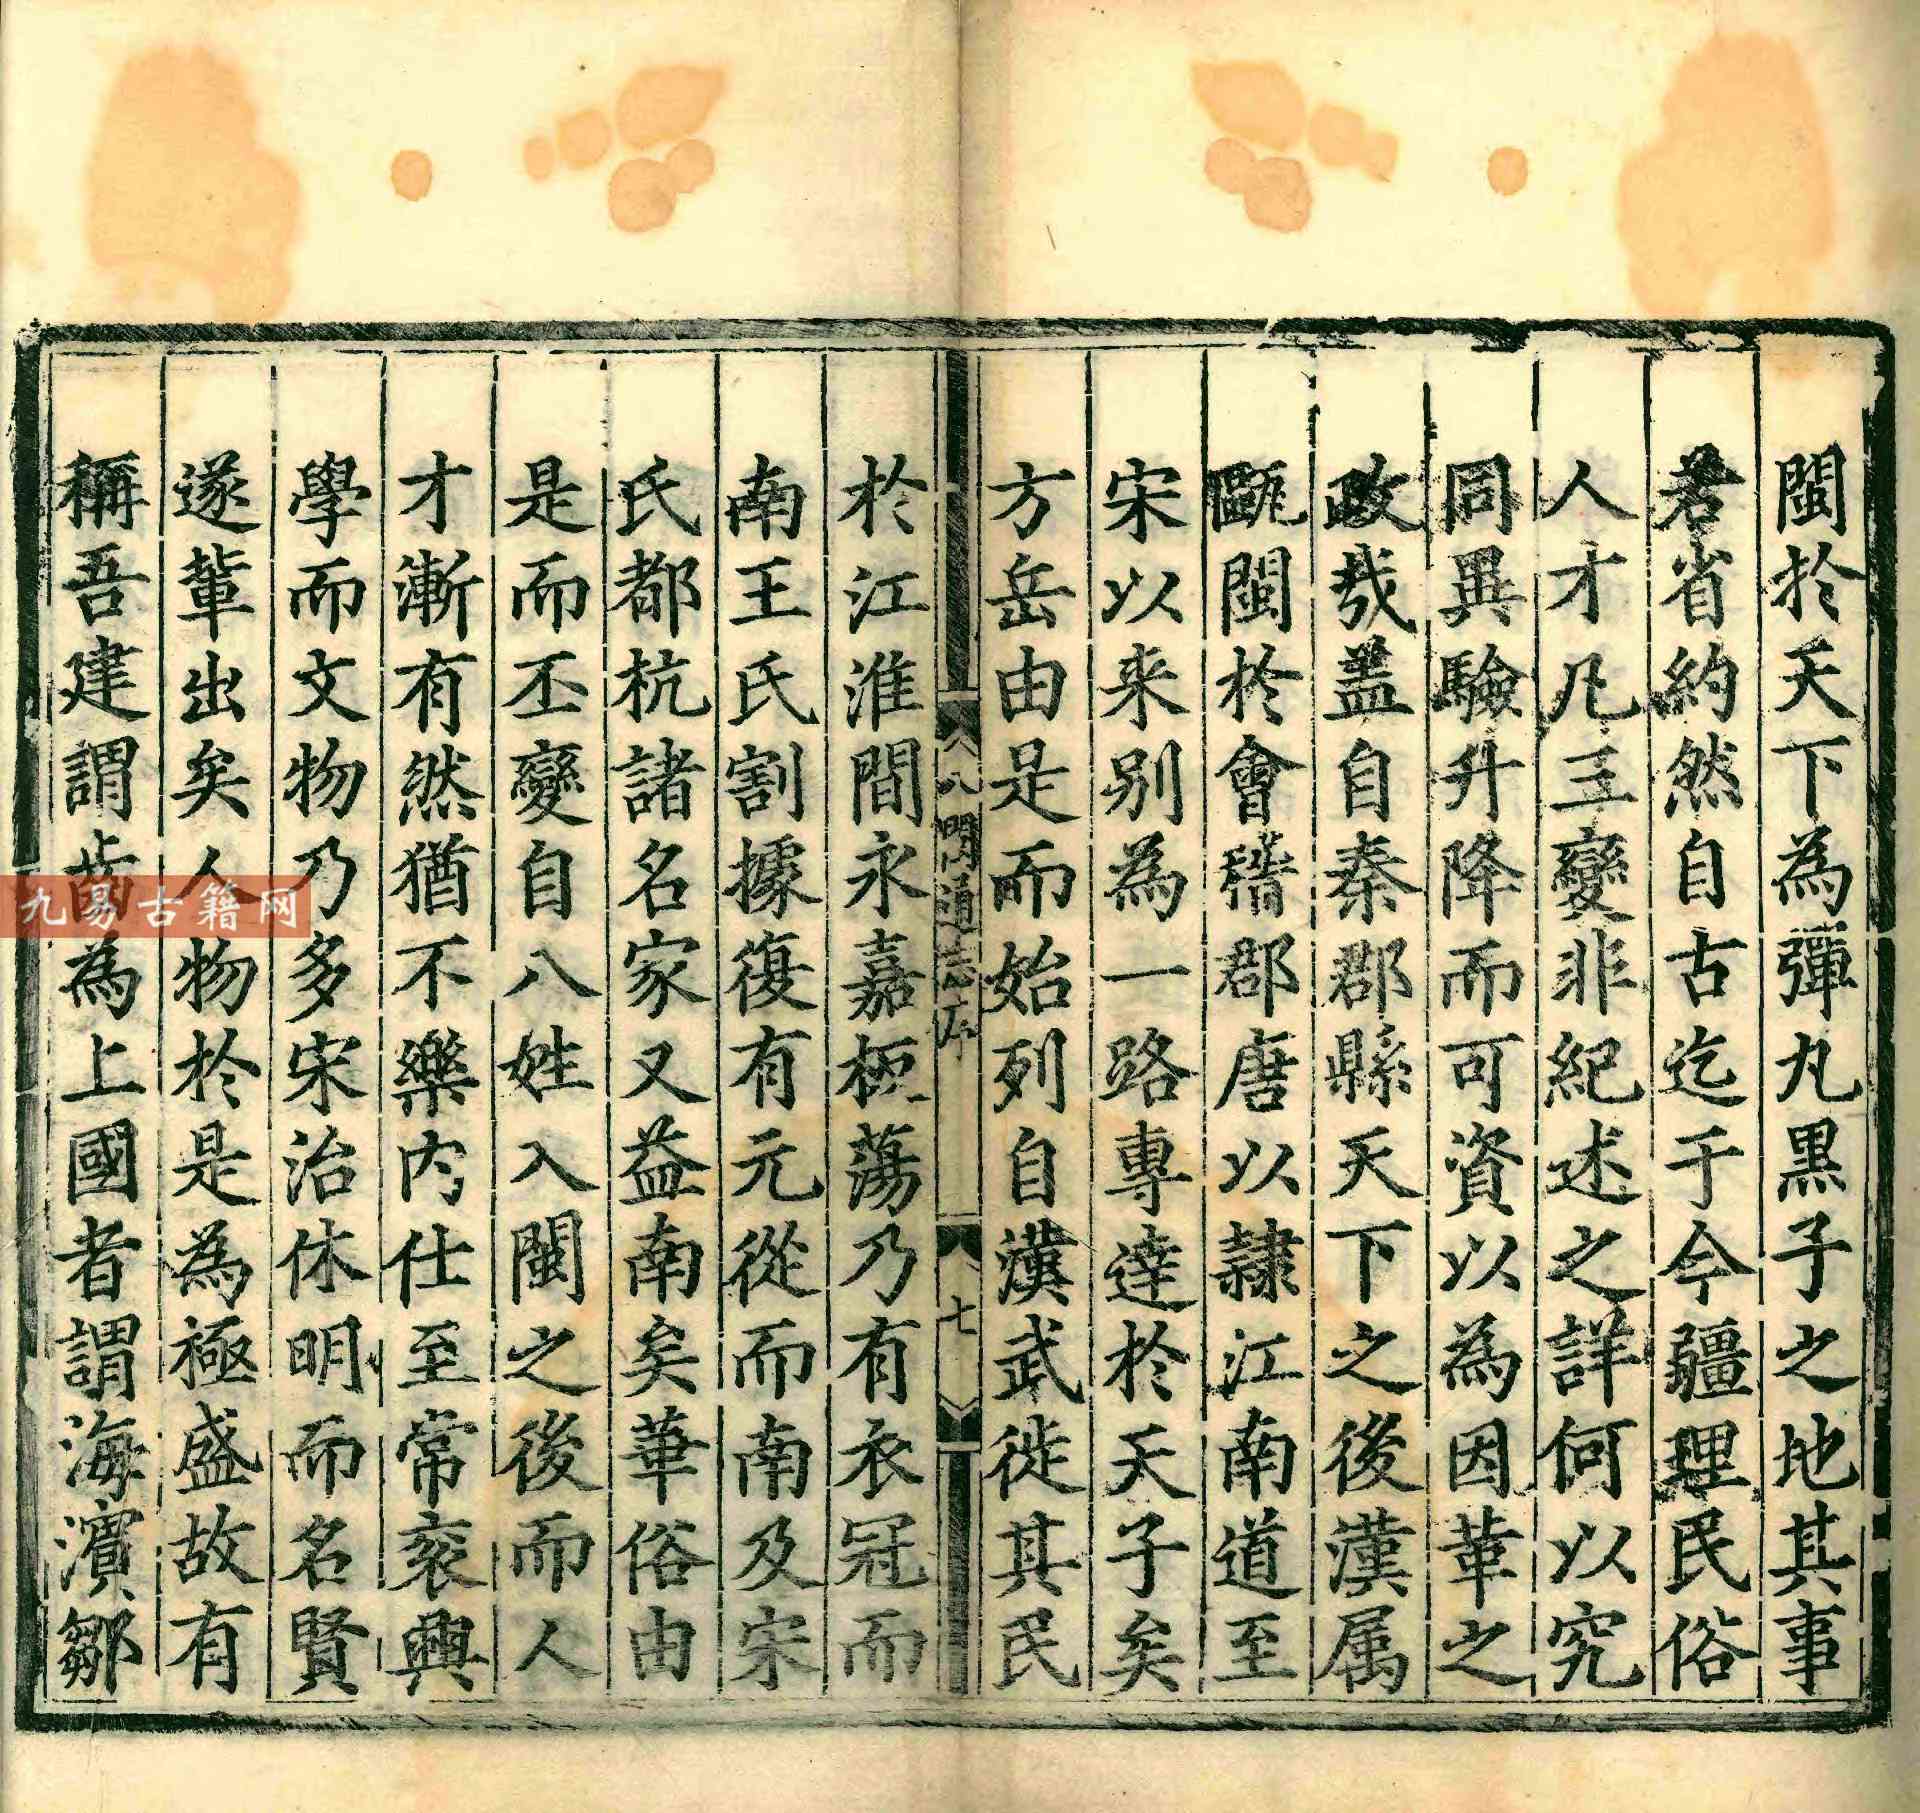 閩於天下為彈丸黒子之地其事
若省約然自古迄于今疆理民俗
人才凡三變非紀述之詳何以究
同異驗升降而可資以為因革之
政㢤盖自秦郡縣天下之後漢属
甌閩於會稽郡唐以隷江南道至
宋以来别為一路專逹於天子矣
方岳由是而始列自漢武徙其民
八閩通志序
七
於江淮間永嘉板蕩乃有衣冠而
南王氏割據復有元從而南及宋
氏都杭諸名家又益南矣華俗由
是而丕變自八姓入閩之後而人
才漸有然猶不樂内仕至常衮興
學而文物乃多宋治休明而名賢
遂輩出矣人物於是為極盛故有
稱吾建謂齒為上國者謂海濵鄒
九易古籍网